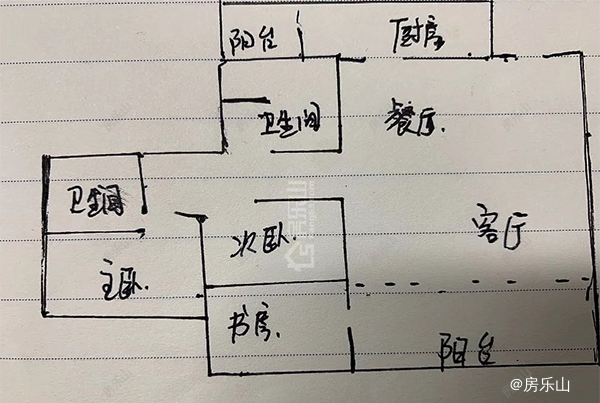 阳台
厨房
卫生间
餐厅
卫生间
次卧
客厅
主卧
书房
阳台
房乐山
@房乐山